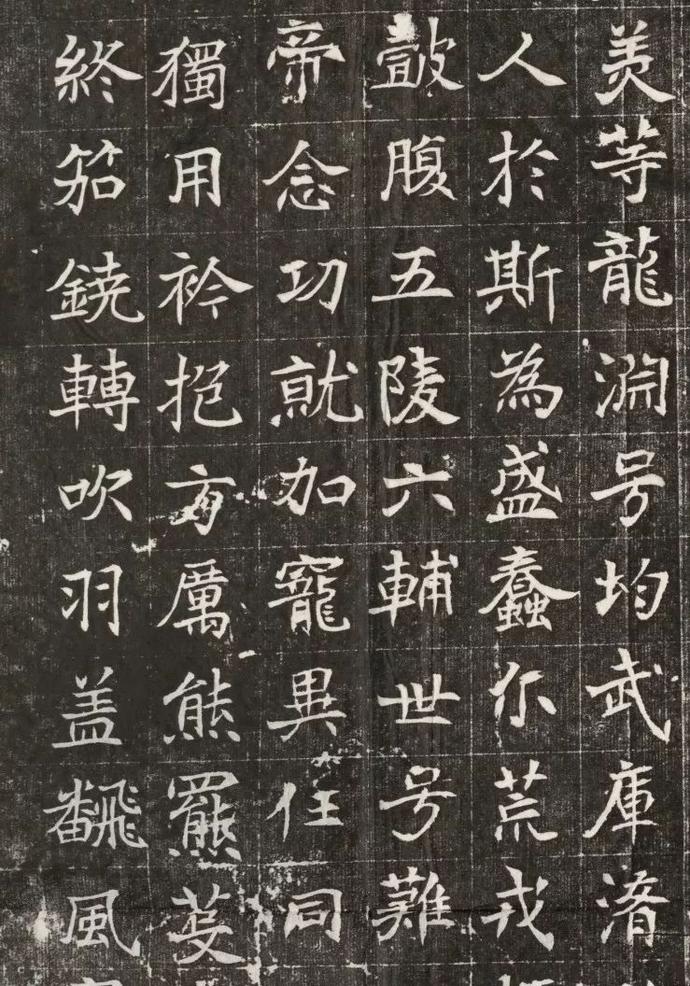 羙等龍淵号均武庫淯
人於斯為盛蠢尒荒戎
皷腹五陵六輔世号難
帝念功就加寵異任同
獨用衿抱方厲熊羆
終笳鐃轉吹羽盖飜風